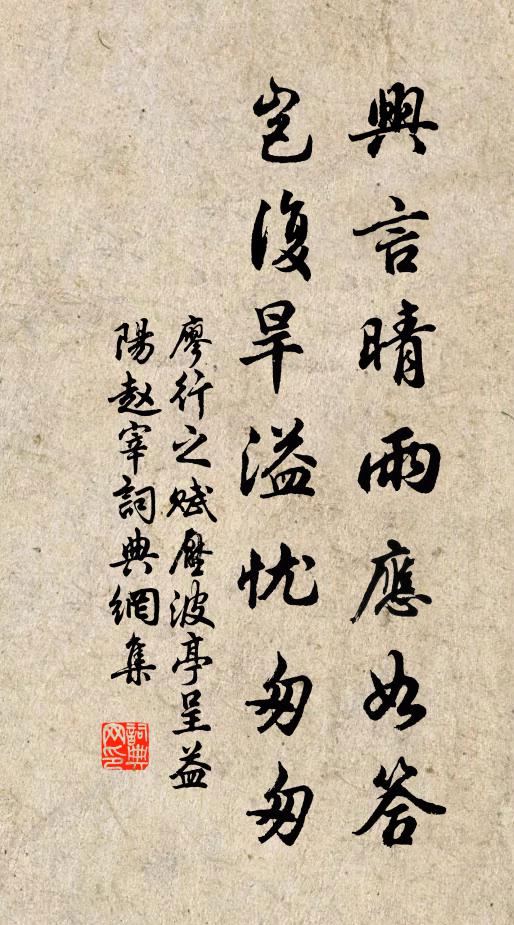 興言晴雨應如答
岂復旱溢忧匆匆
廖行之赋壓波亭呈益
陽赵宰詞典網集
詞典网印